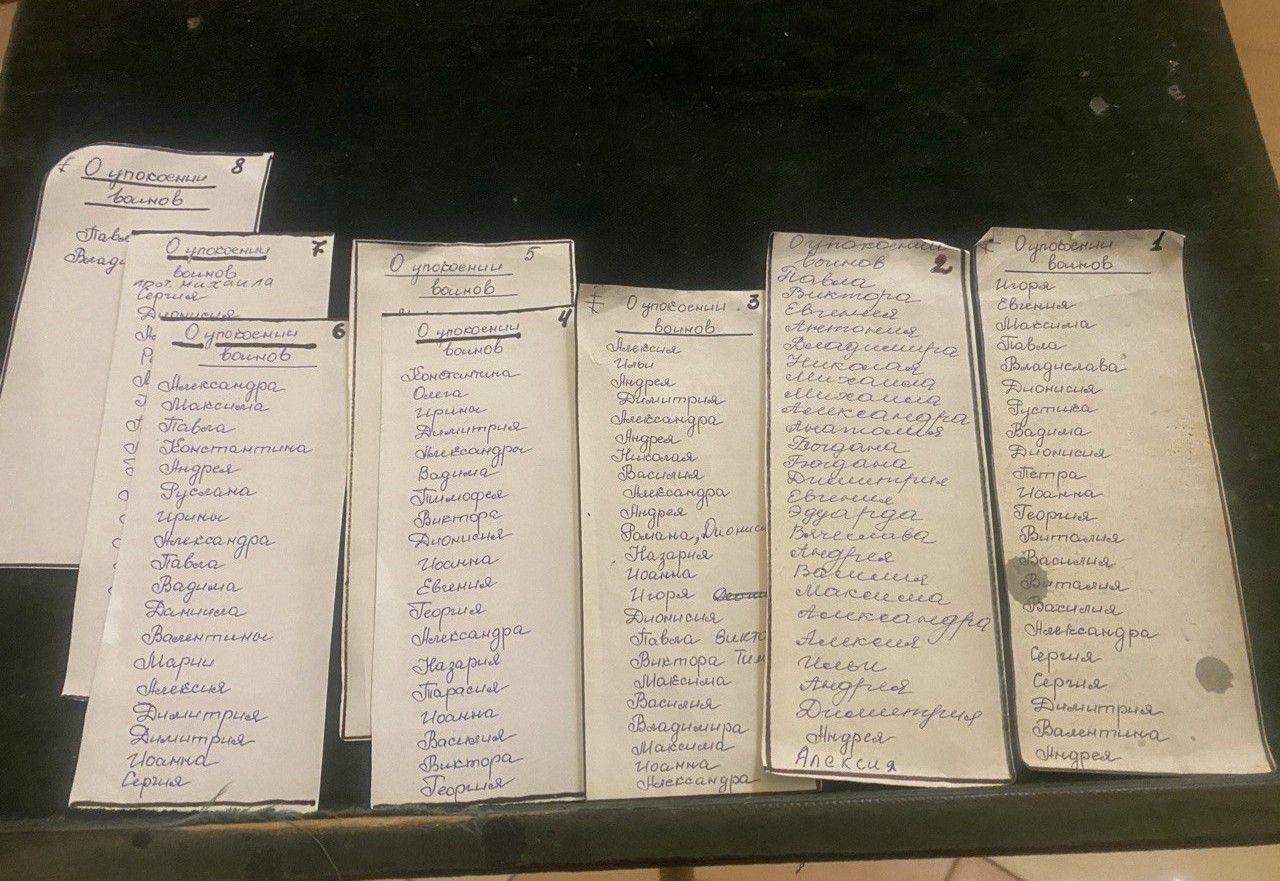 8
О упокоении
воинов
Павл
Влади
7
О упокоении
воинов
прот. Михаила
Сергия
Дионисия
6
О упокоении
воинов
Александра
Максима
Павла
Константина
Андрея
Руслана
Ирины
Александра
Павла
Вадима
Даниила
Валентины
Марии
Алексия
Димитрия
Димитрия
Иоанна
Сергия
5
О упокоении
воинов
4
О упокоении
воинов
Константина
Олега
Ирины
Димитрия
Александра
Вадима
Тимофея
Виктора
Дионисия
Иоанна
Евгения
Георгия
Александра
Назария
Тарасия
Иоанна
Василия
Виктора
Георгия
3
О упокоении
воинов
Алексия
Ильи
Андрея
Димитрия
Александра
Андрея
Николая
Василия
Александра
Андрея
Романа, Диониси
Назария
Иоанна
Игоря
Дионисия
Павла Викто
Виктора Тим
Максима
Василия
Владимира
Максима
Иоанна
Александра
2
О упокоении
воинов
Павла
Виктора
Евгения
Антония
Владимира
Николая
Михаила
Михаила
Александра
Анатолия
Богдана
Богдана
Димитрия
Евгения
Эдуарда
Вячеслава
Андрея
Василия
Максима
Александра
Алексия
Ильи
Андрея
Димитрия
Андрея
Алексия
1
О упокоении
воинов
Игоря
Евгения
Максима
Павла
Владислава
Дионисия
Рустика
Вадима
Дионисия
Петра
Иоанна
Георгия
Виталия
Василия
Виталия
Василия
Александра
Сергия
Сергия
Димитрия
Валентина
Андрея